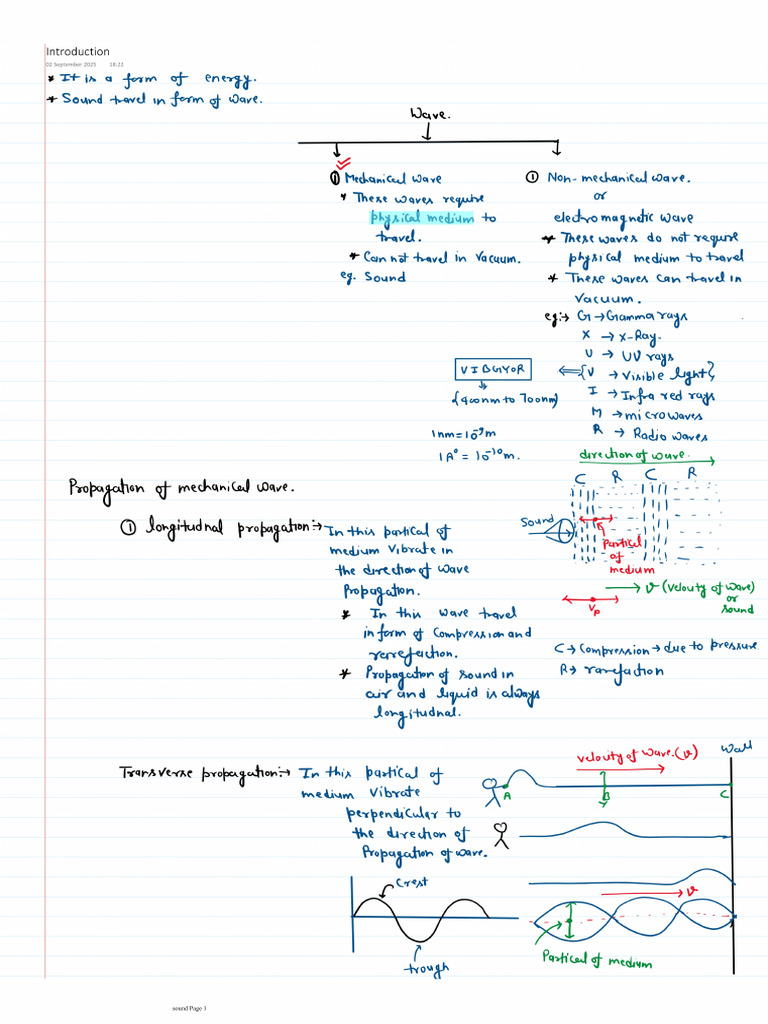 Introduction
02 September 2025 18:21
* It is a form of energy.
* Sound travel in form of wave.
Wave.
① Mechanical wave
* These waves require
physical medium to
travel.
* Can not travel in vacuum.
eg. Sound
① Non-mechanical wave.
or
electromagnetic wave
* These waves do not require
physical medium to travel
* These waves can travel in
vacuum.
eg:→ G → Gamma rays
X → X-Ray.
U → UV rays
{V → visible light}
I → Infra red rays
M → microwaves
R → Radio waves
VIBGYOR
{400nm to 700nm}
1nm = 10⁻⁹m
1A° = 10⁻¹⁰m.
direction of wave.
C R C R
Sound
Partical
of
medium
v (velouty of wave)
or
sound
Vp
C → Compression → due to pressure
R → rarefaction
Propagation of mechanical wave.
① longitudnal propagation:→ In this partical of
medium vibrate in
the direction of wave
Propagation.
* In this wave travel
in form of compression and
rerefaction.
* Propagation of sound in
air and liquid is always
longitudnal.
Transverse propagation:→ In this partical of
medium vibrate
perpendicular to
the direction of
Propagation of wave.
velouty of wave.(v)
Wall
A B C
v
Crest
trough
Partical of medium
sound Page 1